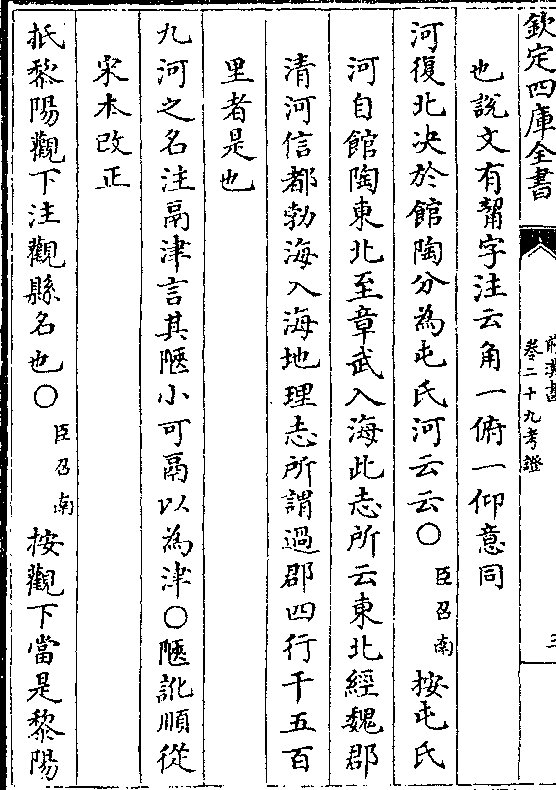 欽定四庫全書
前漢書
卷二十九考證
三
也說文有觢字注云角一俯一仰意同
河復北決於館陶分為屯氏河云云〇臣召南按屯氏
河自館陶東北至章武入海此志所云東北經魏郡
清河信都勃海入海地理志所謂過郡四行千五百
里者是也
九河之名注鬲津言其陿小可鬲以為津〇陿訛順從
宋本改正
抵黎陽觀下注觀縣名也〇臣召南按觀下當是黎陽